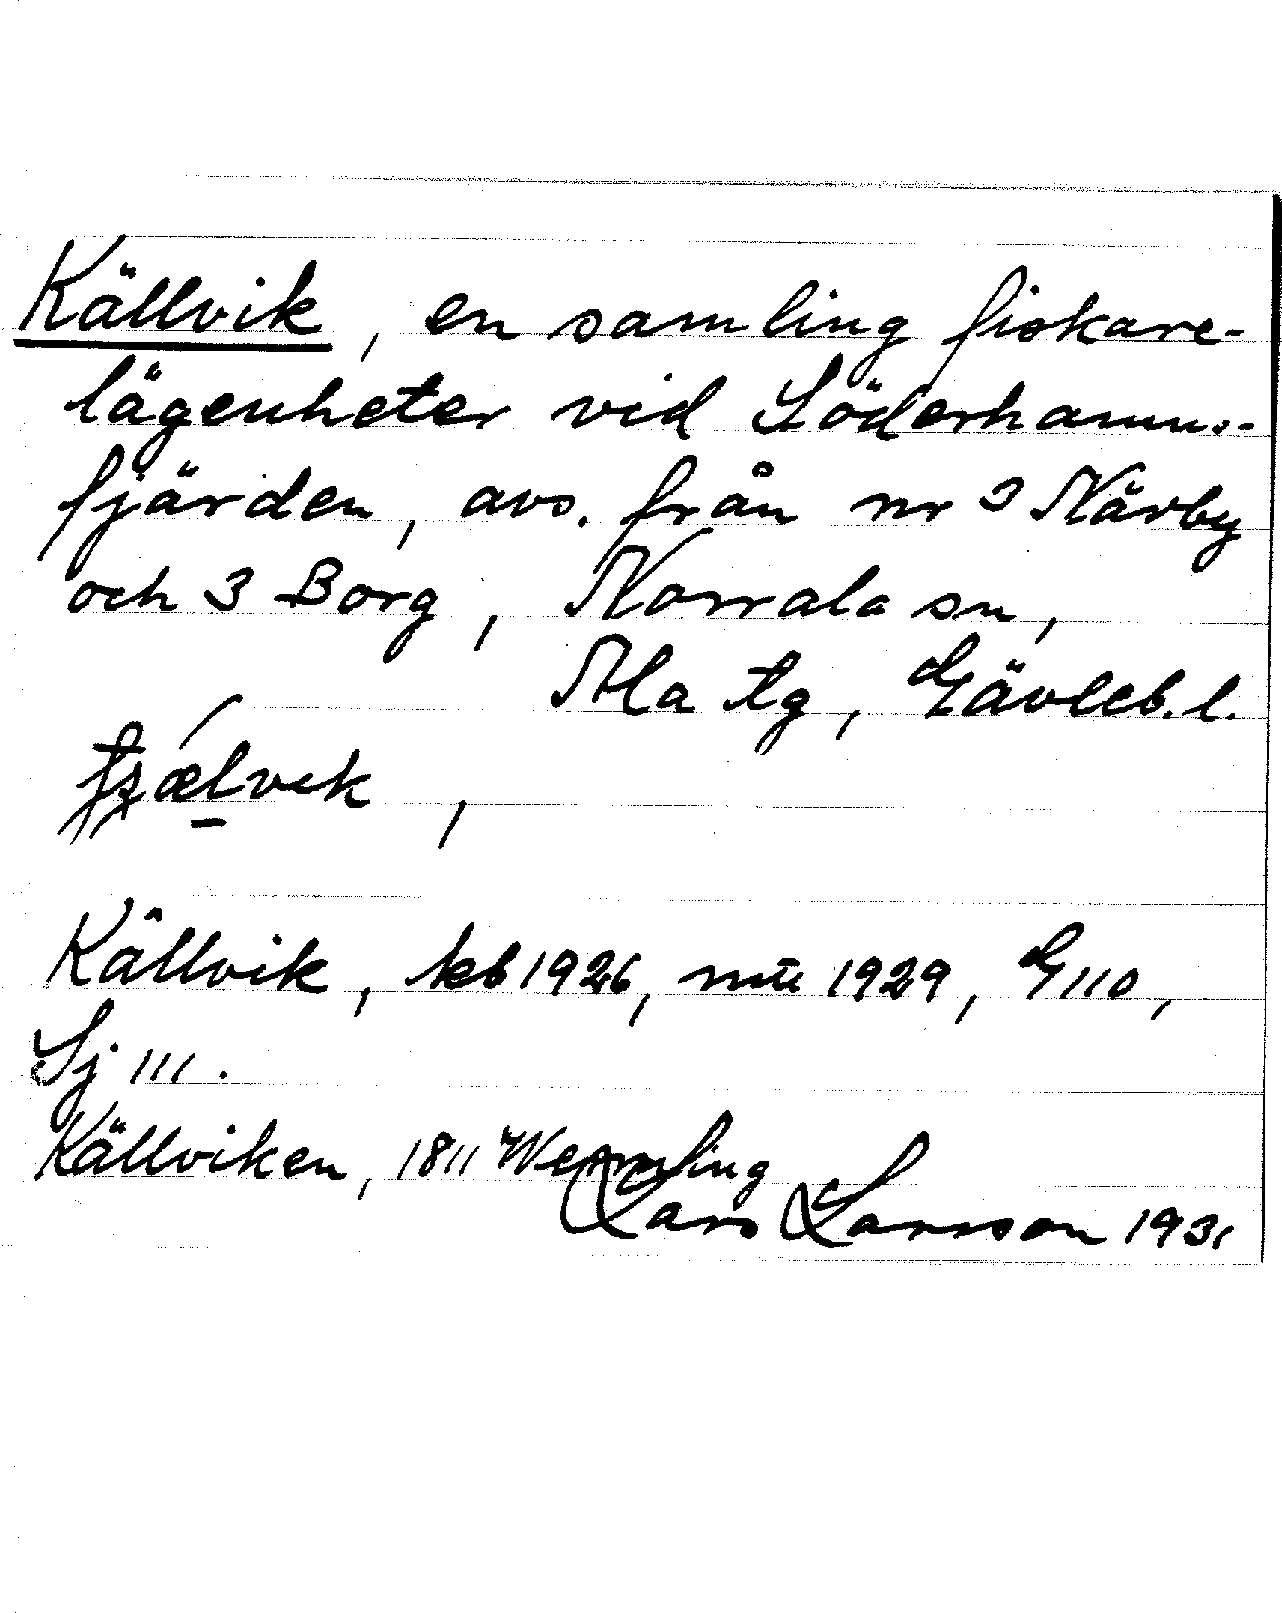 Källvik, en samling fiskare-
lägenheter vid Söderhamns-
fjärden, avs. från nr 3 Närby
och 3 Borg, Norrala sn,
Ala tg, Gävleb. l.
Källvik, keb 1926, mtē 1929, G110,
Sj 111.
Källviken, 1811 Wennling
Lars Larsson 1931